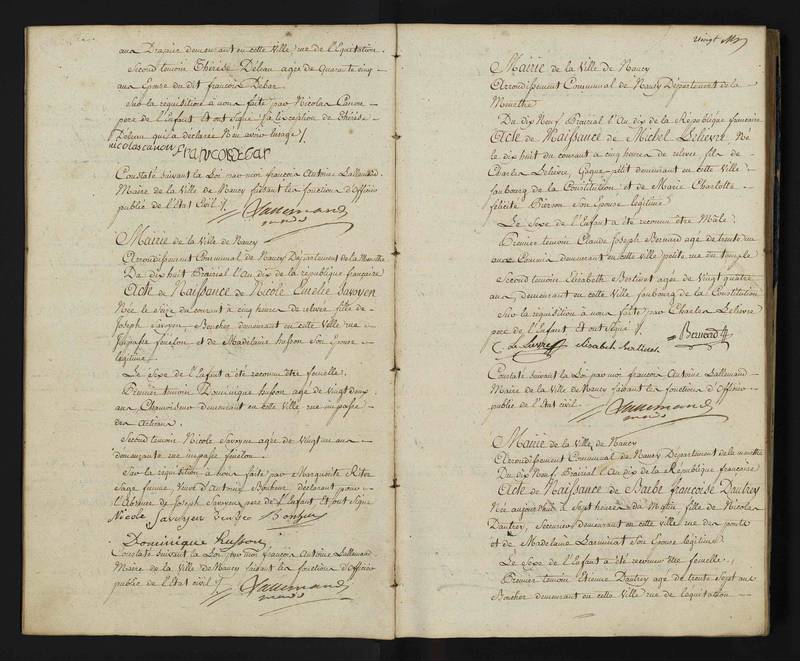 ans Drapier demeurant en cette Ville rue de l'Equitation.
Second temoin Thérèse Déleau agée de Quarante cinq
ans Epouse du dit françois Débar
Sur la requisition à nous faite par Nicolas Canon
pere de l'Enfant Et ont Signé /. à l'exception de Thérèse
Déleau qui a déclarée N'en avoir l'usage /.
nicolas canon françois debar
Constaté Suivant la Loi par moi françois Antoine Lallemand.
Maire de la Ville de Nancy faisant les fonctions d'Officier
public de l'Etat Civil /.
Lallemand
maire
Mairie de la Ville de Nancy
Arrondissement Communal de Nancy Département de la Meurthe
Du dix huit Prairial l'An dix de la république française
Acte de Naissance de Nicole Emélie Savoyen
Née le Seize du courant à cinq heures de relevée fille de
Joseph Savoyen, Boucher demeurant en cette Ville rue
Impasse fénélon et de Madelaine husson Son Epouse
légitime.
Le Sexe de l'Enfant a été reconnu être femelle.
Premier temoin Dominique husson agé de Vingt deux
ans Chamoiseur demeurant en cette Ville rue impasse
des Artisans.
Second temoin Nicole Savoyen agée de Vingt un ans
demeurante rue impasse fénélon.
Sur la requisition à nous faite par Marguerite Ritz
Sage femme, Veuve d'Antoine Bonheur déclarant pour
l'Absence de Joseph Savoyen pere de l'Enfant Et ont Signé
Nicole Savoyen Bonheur
Dominique husson
Constaté Suivant la Loi par moi françois Antoine Lallemand
Maire de la Ville de Nancy faisant les fonctions d'Officier
public de l'Etat Civil /.
Lallemand
maire
Vingt
Mairie de la Ville de Nancy
Arrondissement Communal de Nancy Département de la
Meurthe
Du dix Neuf Prairial l'An dix de la République française
Acte de Naissance de Michel Lelièvre, Né
le dix huit du courant à cinq heures de relevée fils de
Charles Lelièvre, Gagne-petit demeurant en cette Ville
faubourg de la Constitution et de Marie Charlotte
félicité Pierson Son Epouse légitime.
Le Sexe de l'Enfant a été reconnu être Mâle.
Premier temoin Claude Joseph Bernard agé de trente un
ans Commis demeurant en cette ville petite rue du temple
Second temoin Elisabeth agée de Vingt quatre
ans, demeurant en cette Ville faubourg de la Constitution
Sur la requisition à nous faite par Charles Lelièvre
pere de l'Enfant et ont Signé /.
C. Le Lievre Elisabeth Bernard
Constaté Suivant la Loi par moi françois Antoine Lallemand
Maire de la Ville de Nancy faisant les fonctions d'Officier
public de l'état civil.
Lallemand
maire
Mairie de la Ville de Nancy
Arrondissement Communal de Nancy Département de la meurthe
Du dix Neuf Prairial l'An dix de la République française
Acte de Naissance de Barbe françoise Dautrey
Née aujourd'hui à Sept heures du Matin, fille de Nicolas
Dautrey, Serrurier demeurant en cette ville rue des ponts
et de Madelaine Larminat Son Epouse légitime.
Le Sexe de l'Enfant a été reconnu être femelle.
Premier temoin Etienne Dautrey agé de trente Sept ans
Boucher demeurant en cette Ville rue de l'équitation